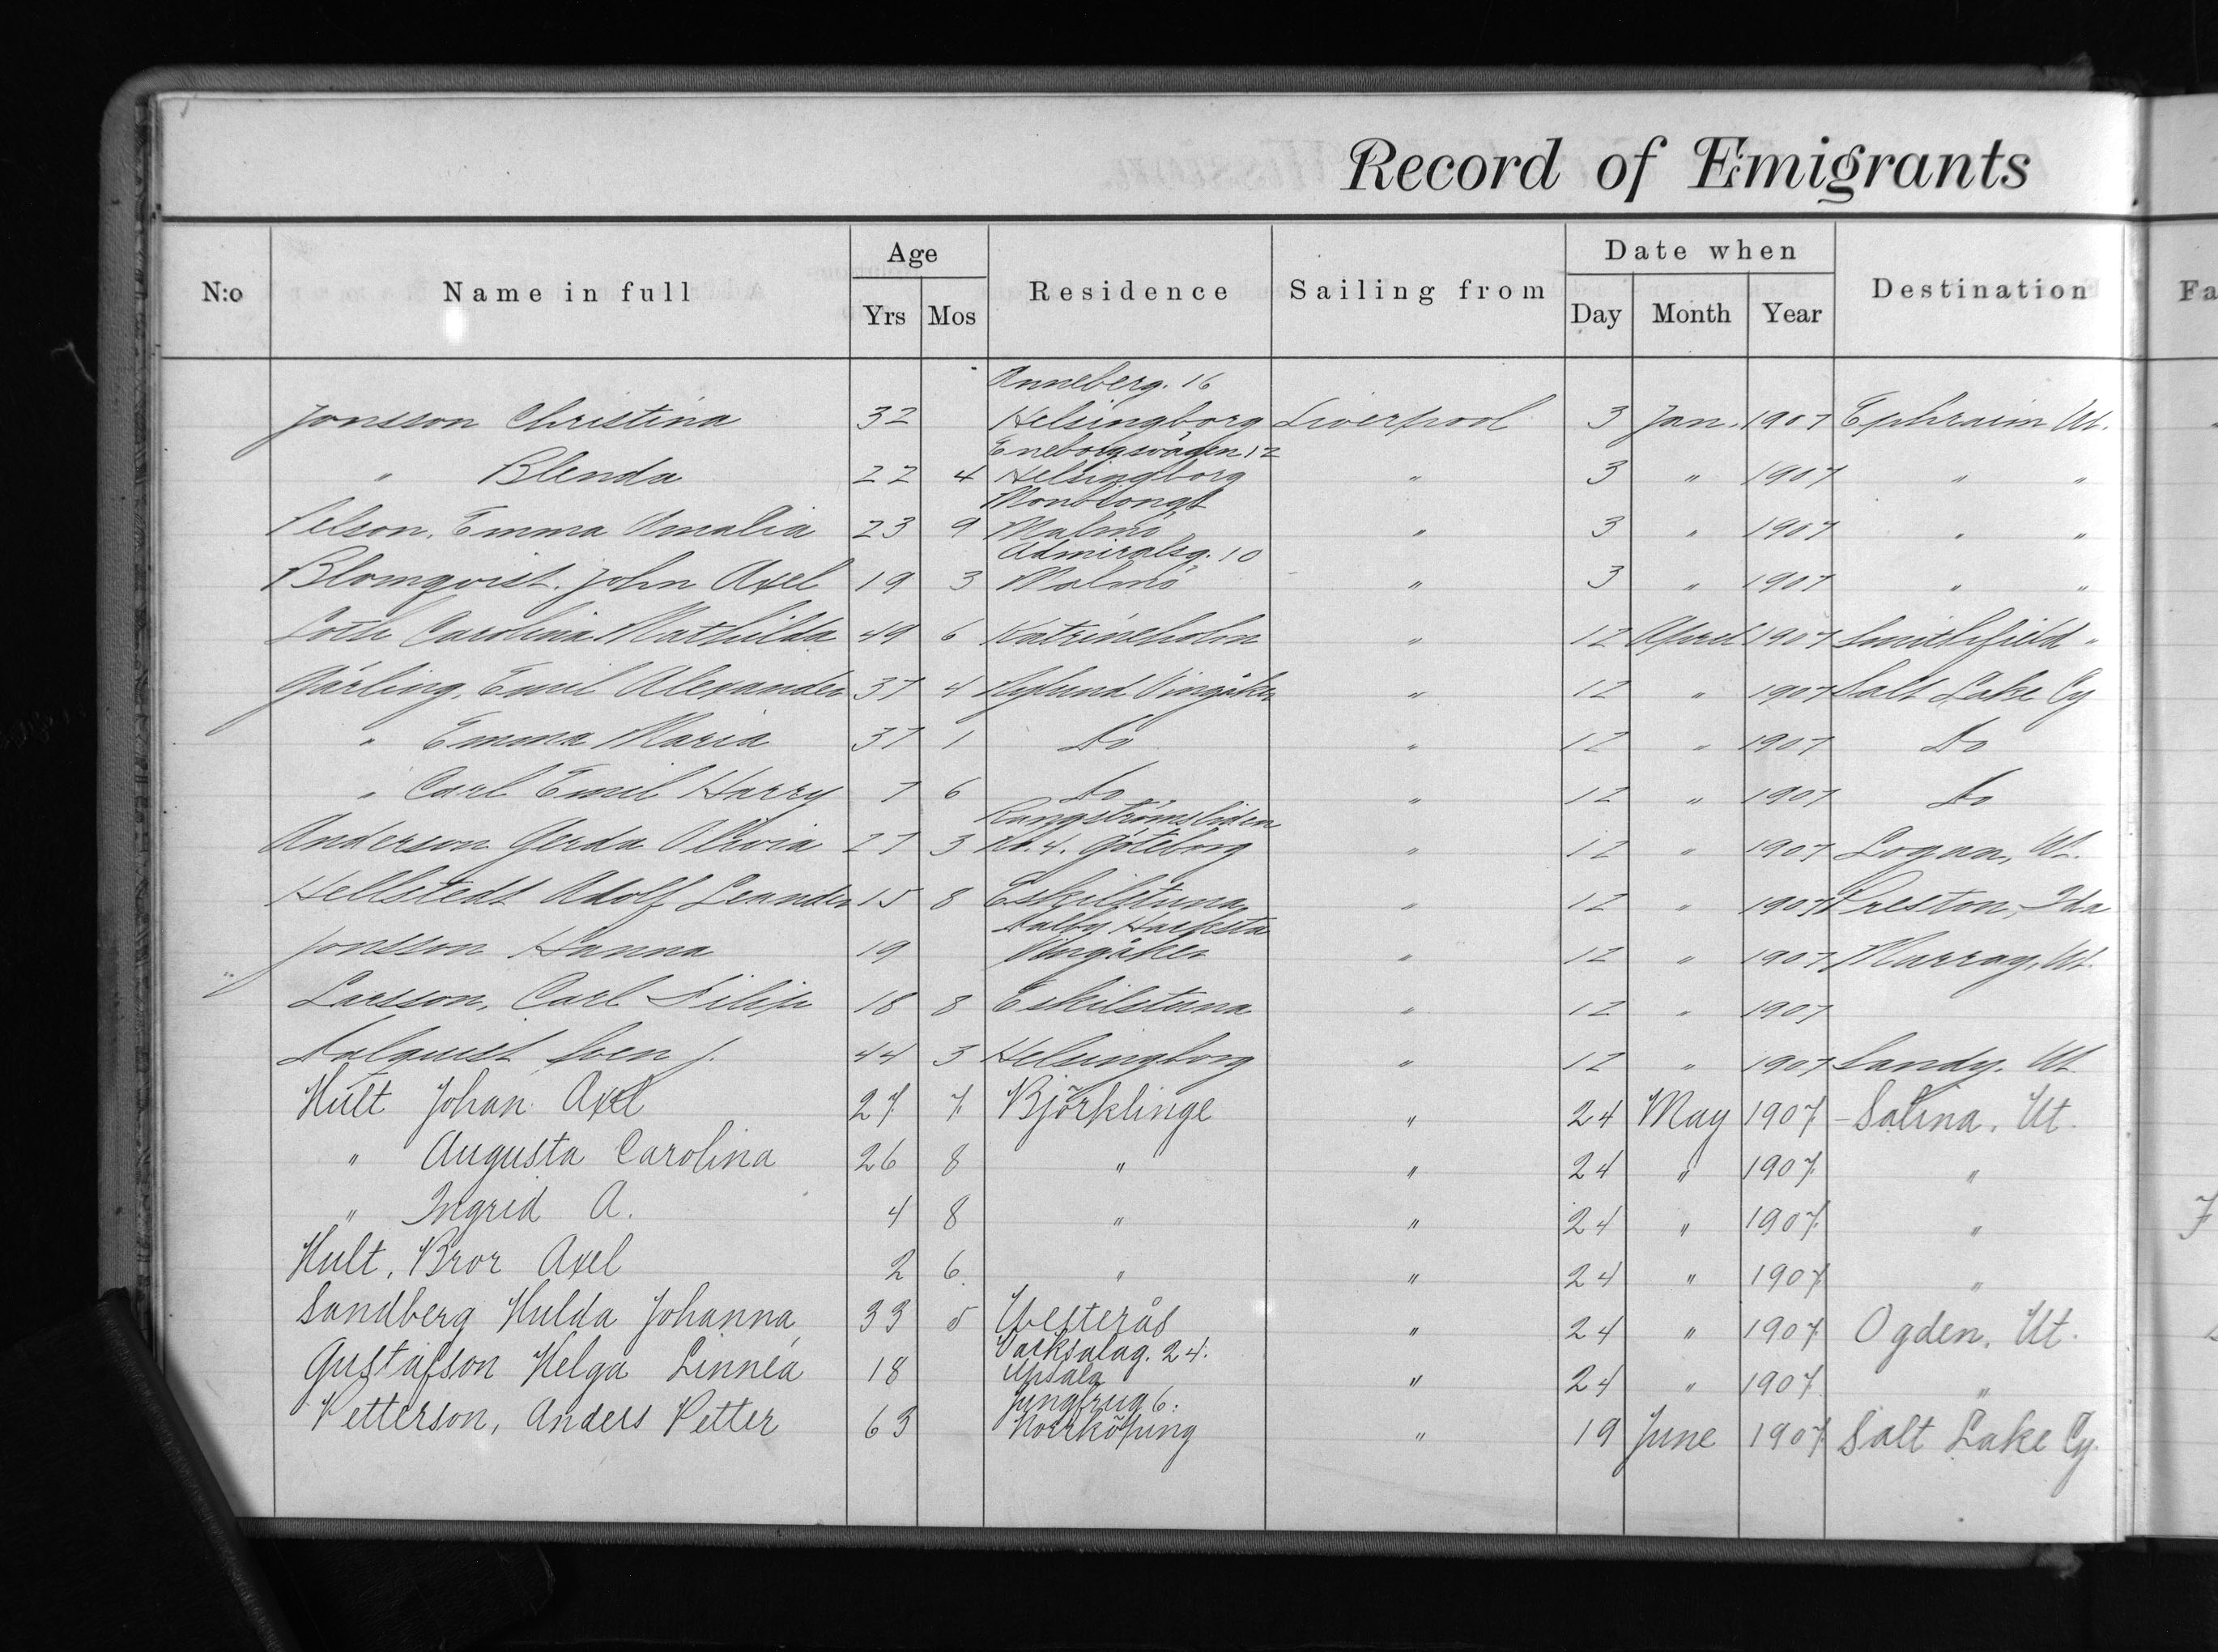 Record of Emigrants
N:o Name in full Age Yrs Mos Residence Sailing from Date when Day Month Year Destination Fa
Anneberg. 16
Jonsson Christina 32 Helsingborg Liverpool 3 Jan. 1907 Ephraim Ut.
Eneborgsvägen 12
" Blenda 22 4 Helsingborg " 3 " 1907 " "
Emma Amalia 23 9 Malmö " 3 " 1907 " "
Admiralsg. 10
Blomqvist. John Axel 19 3 Malmö " 3 " 1907 " "
Carolina Mathilda 49 6 Katrineholm " 12 April 1907 Smithfield "
Gärling, Emil Alexander 37 4 Vingåker " 12 " 1907 Salt Lake Cy
" Emma Maria 37 1 Do " 12 " 1907 Do
" Carl Emil Harry 7 6 Do " 12 " 1907 Do
Rangströmsliden
Anderson Gerda Olivia 27 3 No. 4. Göteborg " 12 " 1907 Logan, Ut.
Hellstedt Adolf Leander 15 8 Eskilstuna " 12 " 1907 Preston, Ida
Jonsson Hanna 19 Vingåker " 12 " 1907 Murray, Ut.
Larsson, Carl Filip 18 8 Eskilstuna " 12 " 1907
Dalquist Sven J. 44 3 Helsingborg " 12 " 1907 Sandy. Ut
Hult Johan Axel 27 7 Björklinge " 24 May 1907 - Salina. Ut.
" Augusta Carolina 26 8 " " 24 " 1907 "
" Ingrid A. 4 8 " " 24 " 1907 "
Hult, Bror Axel 2 6. " " 24 " 1907 "
Sandberg Hulda Johanna 33 5 Westerås " 24 " 1907 Ogden. Ut.
Vaksalag. 24.
Gustafson Helga Linnéa 18 Upsala " 24 " 1907 "
Jungfrug 6.
Petterson, Anders Petter 63 Norrköping " 19 June 1907 Salt Lake Cy.